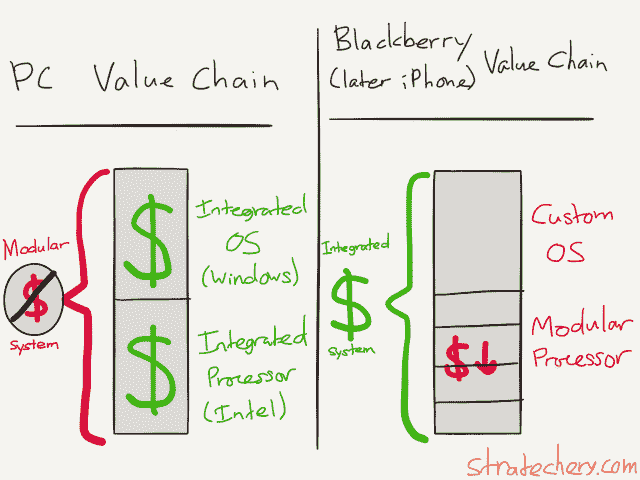 PC Value Chain
Modular
$
System
$
Integrated
OS
(Windows)
$
Integrated
Processor
(Intel)
Blackberry/
(later iPhone) Value Chain
Integrated
$
System
Custom
OS
$↓
Modular
Processor
stratechery.com